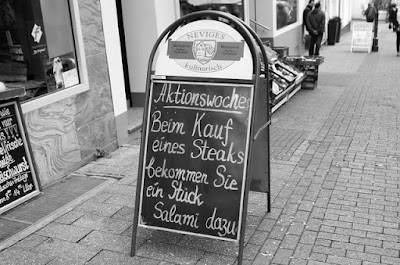 NEVIGES
kulinarisch
Aktionswoche:
Beim Kauf
eines Steaks
bekommen Sie
ein Stück
Salami dazu